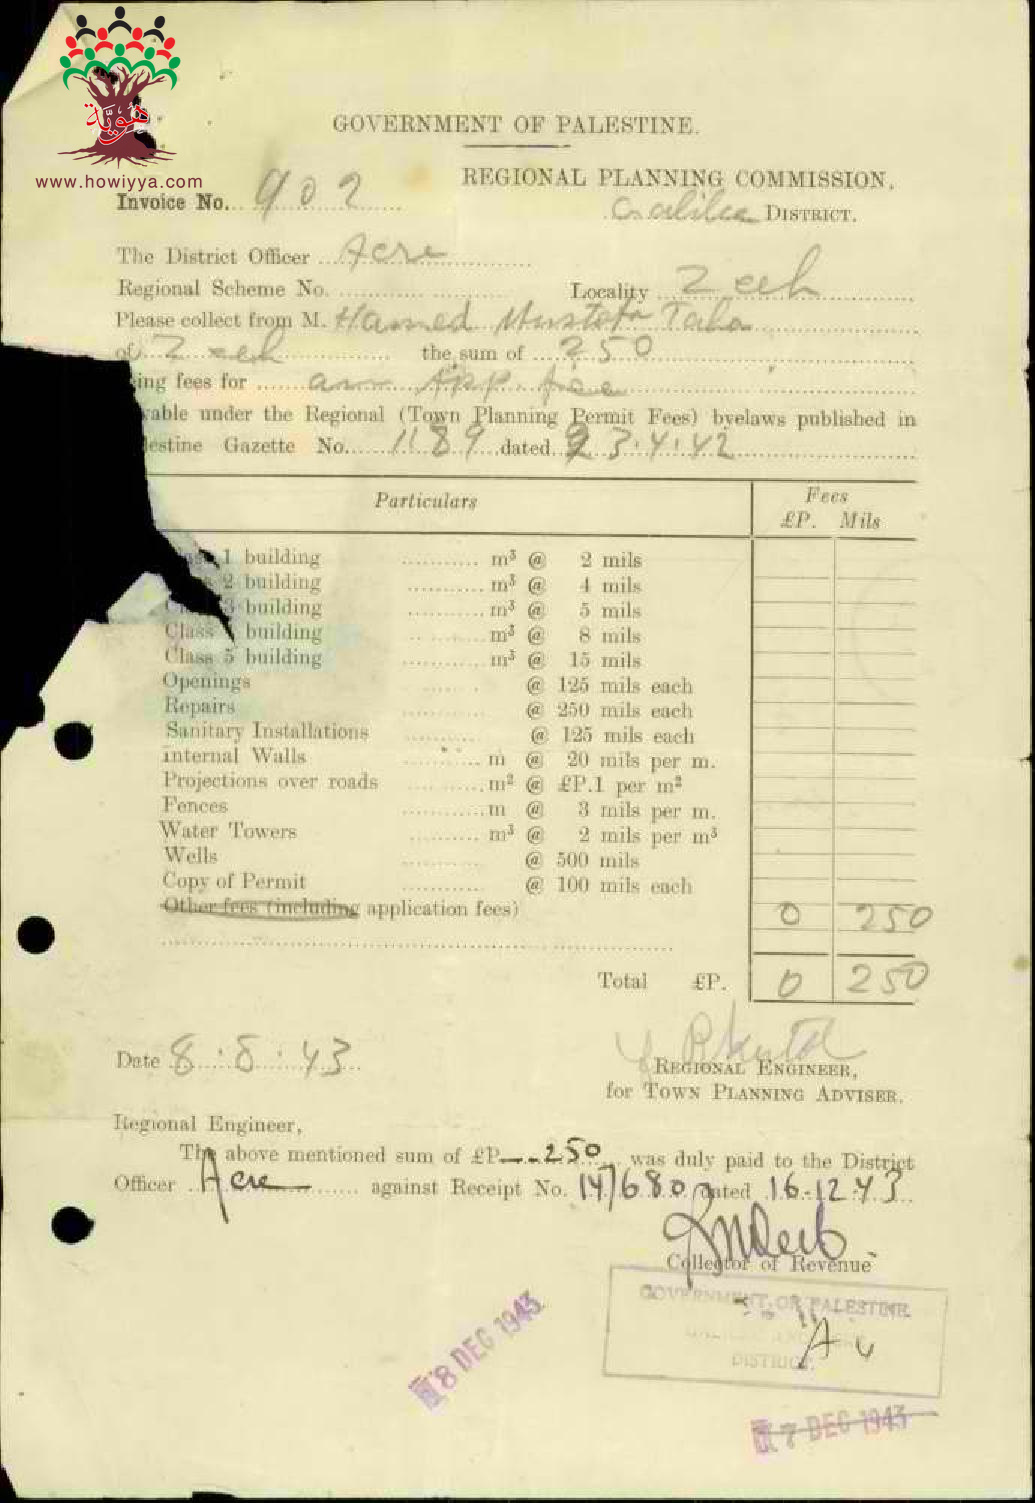 هوية
www.howiyya.com
GOVERNMENT OF PALESTINE.
REGIONAL PLANNING COMMISSION,
Invoice No. 902
Galilee DISTRICT.
The District Officer Acre
Regional Scheme No. Locality Zeeb
Please collect from M. Hamed Mustafa Taha
of Zeeb the sum of 250
ing fees for an App fee
able under the Regional (Town Planning Permit Fees) byelaws published in
lestine Gazette No. 1189 dated 23.4.42
Particulars Fees
£P. Mils
1 building m³ @ 2 mils
2 building m³ @ 4 mils
3 building m³ @ 5 mils
Class building m³ @ 8 mils
Class 5 building m³ @ 15 mils
Openings @ 125 mils each
Repairs @ 250 mils each
Sanitary Installations @ 125 mils each
Internal Walls m @ 20 mils per m.
Projections over roads m² @ £P.1 per m²
Fences m @ 3 mils per m.
Water Towers m³ @ 2 mils per m³
Wells @ 500 mils
Copy of Permit @ 100 mils each
Other fees (including application fees) 0 250
Total £P. 0 250
Date 8.8.43
REGIONAL ENGINEER,
for TOWN PLANNING ADVISER.
Regional Engineer,
The above mentioned sum of £P -.250 was duly paid to the District
Officer Acre against Receipt No. 147680 dated 16.12.43
Collector of Revenue
GOVERNMENT OF PALESTINE
DISTRICT.
18 DEC 1943
17 DEC 1943